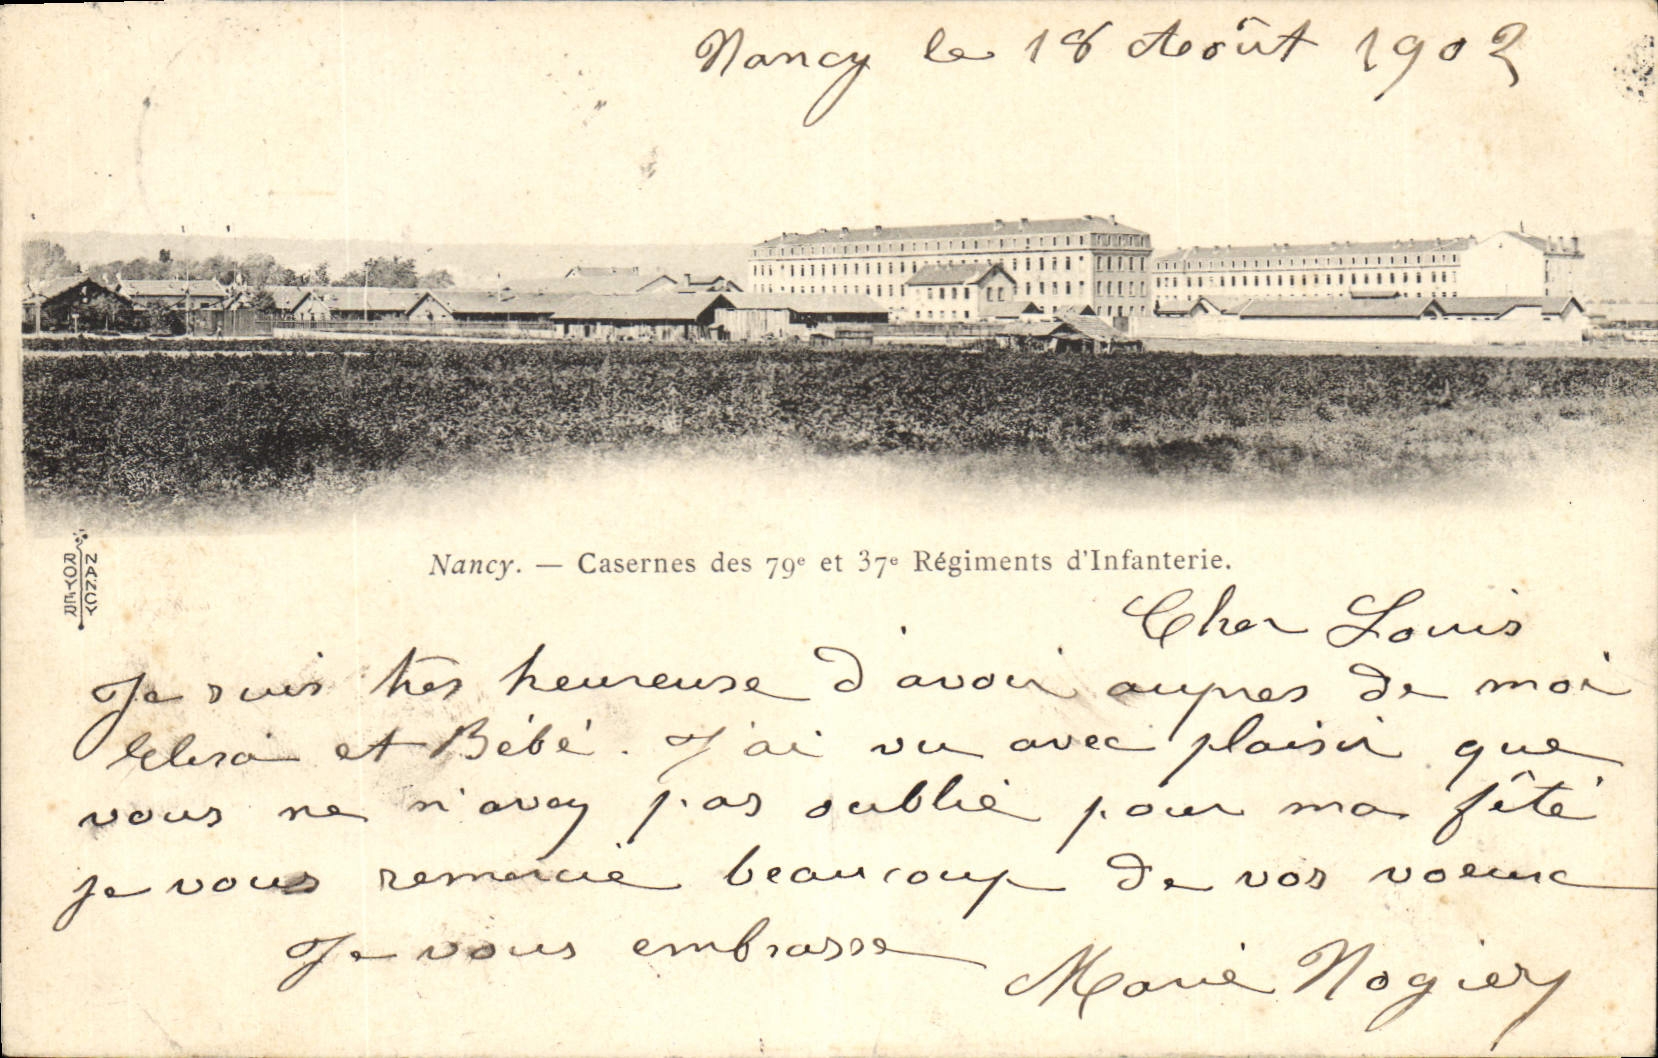 Nancy le 18 Août 1902
Nancy. — Casernes des 79e et 37e Régiments d'Infanterie.
ROYER
NANCY
Cher Louis
Je suis très heureuse d'avoir auprès de moi
et Bébé. J'ai vu avec plaisir que
vous ne n'avez pas oublié pour ma fêté
je vous remercie beaucoup de vos voeux
Je vous embrasse
Marie Nogier